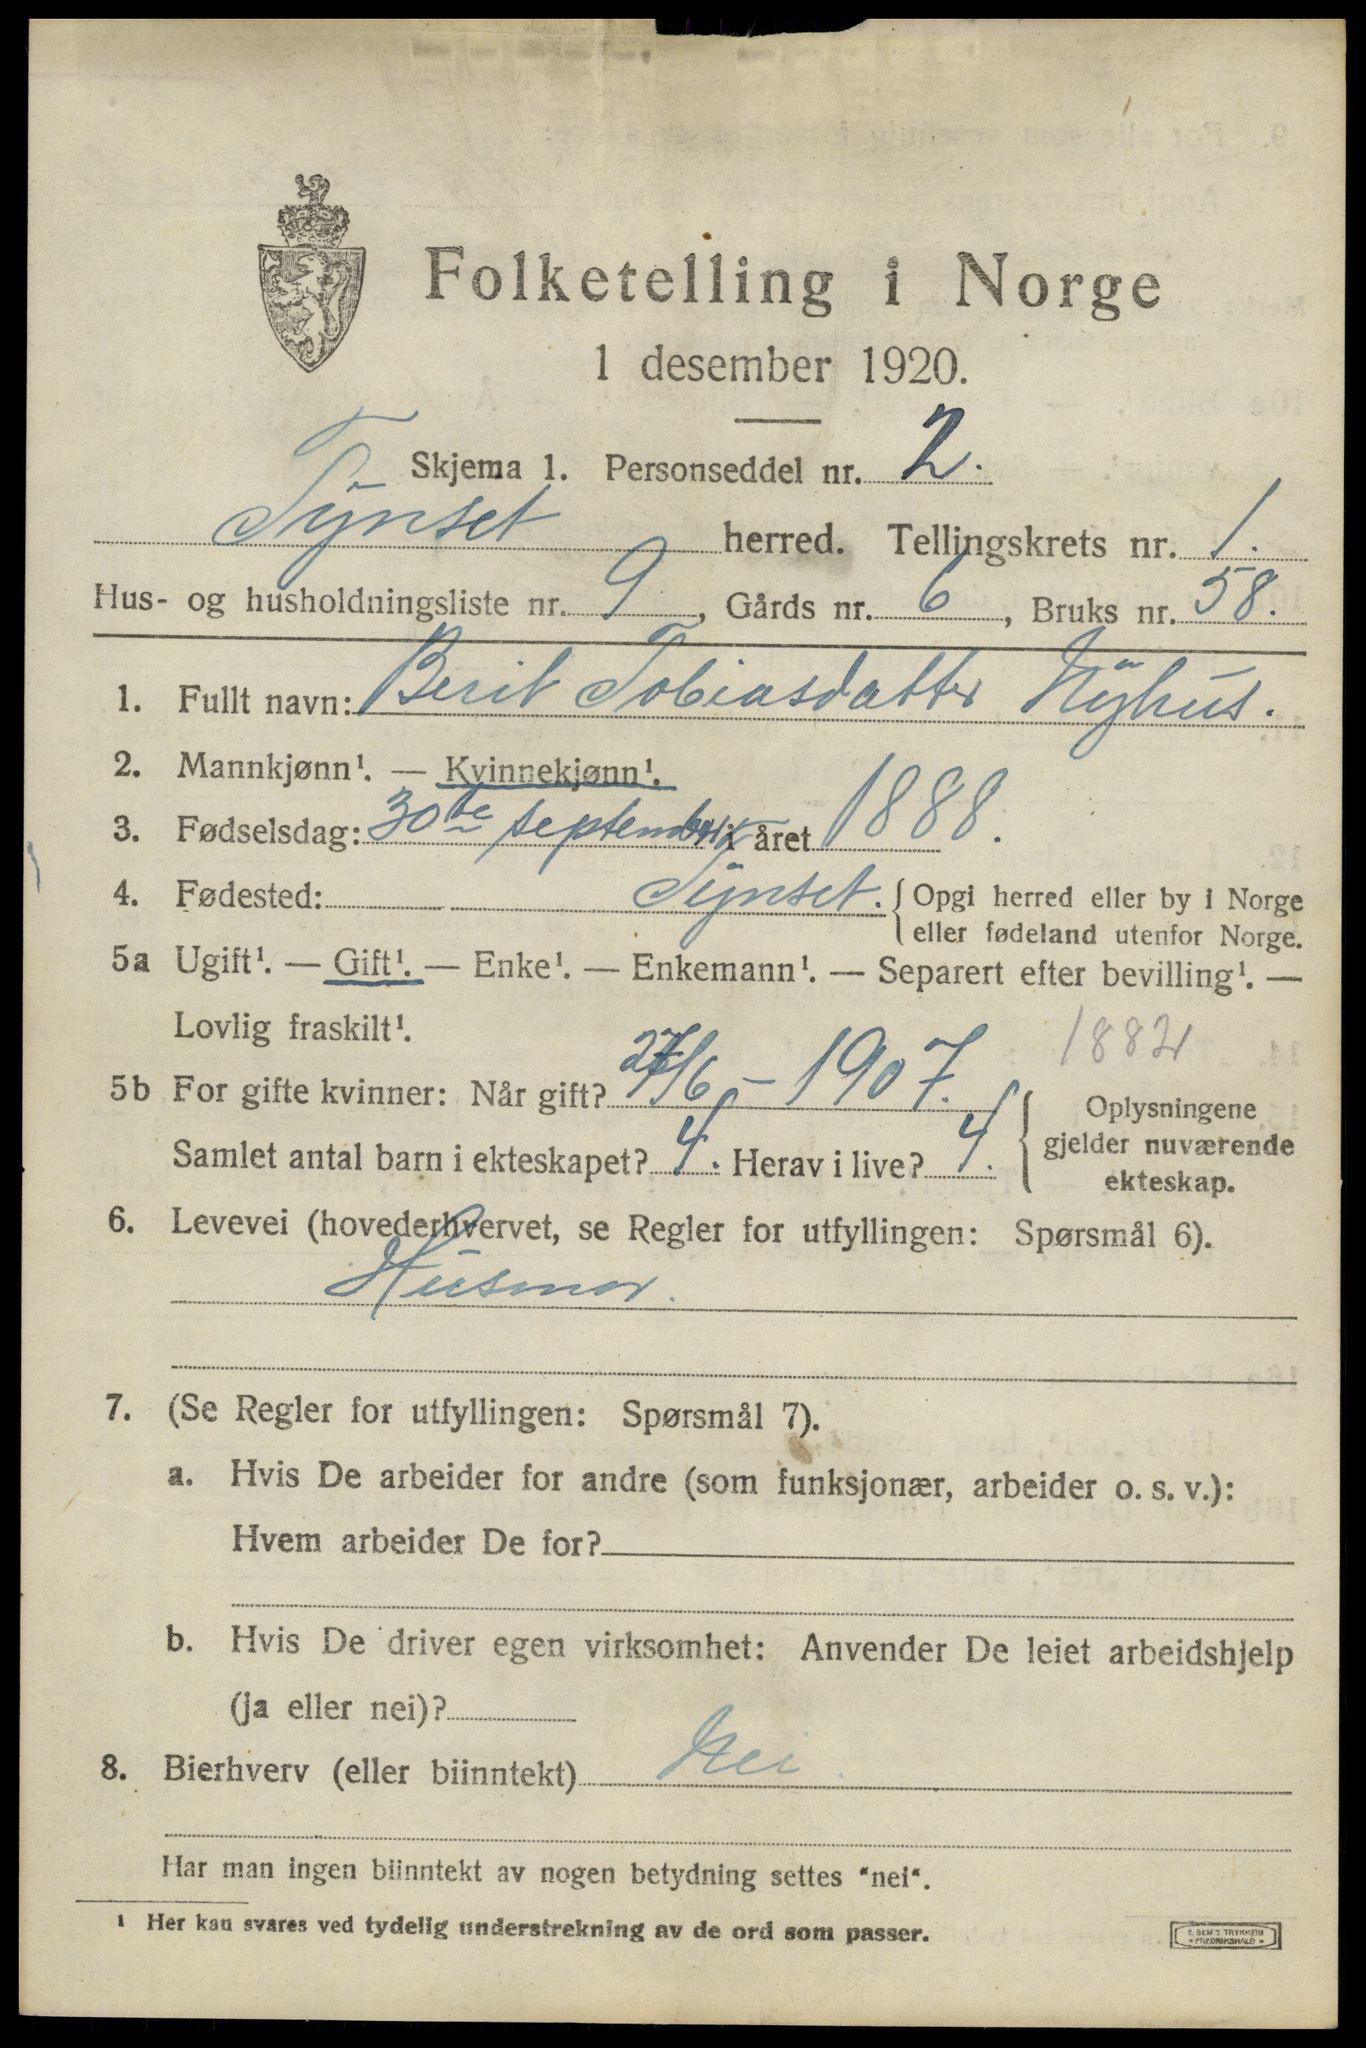 Folketelling i Norge
1 desember 1920.
Skjema 1. Personseddel nr. 2.
Tynset herred. Tellingskrets nr. 1.
Hus- og husholdningsliste nr. 9, Gårds nr. 6, Bruks nr. 58.
1. Fullt navn: Berit Tobiasdatter Nyhus.
2. Mannkjønn¹. — Kvinnekjønn¹.
3. Fødselsdag: 30te september i året 1888.
4. Fødested: Tynset. { Opgi herred eller by i Norge
eller fødeland utenfor Norge.
5a Ugift¹. — Gift¹. — Enke¹. — Enkemann¹. — Separert efter bevilling¹. —
Lovlig fraskilt¹.
5b For gifte kvinner: Når gift? 27/6 – 1907.
Samlet antal barn i ekteskapet? 4. Herav i live? 4.
Oplysningene
gjelder nuværende
ekteskap.
6. Levevei (hovederhvervet, se Regler for utfyllingen: Spørsmål 6).
Husmor.
7. (Se Regler for utfyllingen: Spørsmål 7).
a. Hvis De arbeider for andre (som funksjonær, arbeider o. s. v.):
Hvem arbeider De for?
b. Hvis De driver egen virksomhet: Anvender De leiet arbeidshjelp
(ja eller nei)?
8. Bierhverv (eller biinntekt) Nei.
Har man ingen biinntekt av nogen betydning settes "nei".
¹ Her kan svares ved tydelig understrekning av de ord som passer.
E. SEM'S TRYKKERI
FREDRIKSHALD